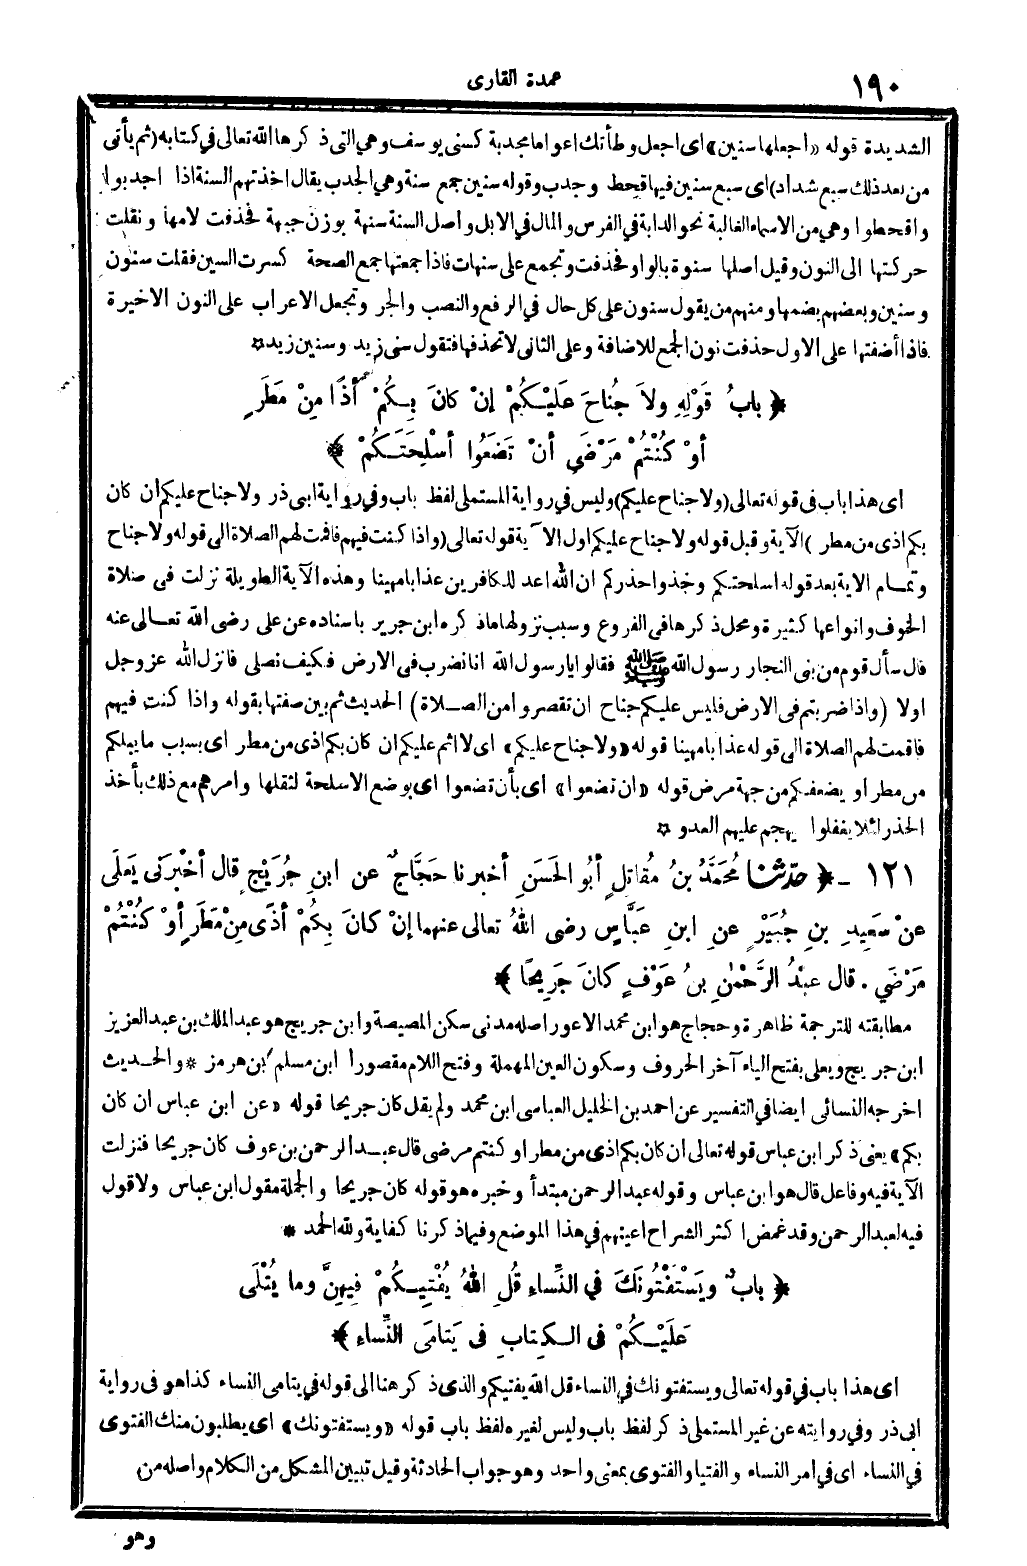 ١٩٠
عمدة القارى
الشديدة قوله «اجعلها سنين» اى اجعل وطأتك اعواما مجدبة كسنى يوسف وهي التى ذكرها الله تعالى في كتابه (ثم يأتى
من بعد ذلك سبع شداد) اى سبع سنين فيها قحط وجدب وقوله سنين جمع سنة وهي الجدب يقال اخذتهم السنة اذا اجدبوا
واقحطوا وهي من الاسماء الغالبة نحو الدابة في الفرس والمال في الابل واصل السنة سنهة بوزن جبهة فحذفت لامها ونقلت
حركتها الى النون وقيل اصلها سنوة بالواو فحذفت وتجمع على سنهات فاذا جمعتها جمع الصحة كسرت السين فقلت سنون
وسنين وبعضهم يضمها ومنهم من يقول سنون على كل حال في الرفع والنصب والجر وتجعل الاعراب على النون الاخيرة
فاذا أضفتها على الاول حذفت نون الجمع للاضافة وعلى الثانى لا تحذفها فتقول سنى زيد وسنين زيد ¤
﴿ بابُ قَوْلِهِ ولاَ جُناحَ عَلَيْكُمْ إنْ كانَ بِكُمْ أذًا مِنْ مَطَرٍ
أوْ كُنْتُمْ مَرْضَى أنْ تَضَعُوا أسْلِحَتَكُمْ ﴾
اى هذا باب فى قوله تعالى (ولا جناح عليكم) وليس في رواية المستملى لفظ باب وفي رواية ابى ذر ولا جناح عليكم ان كان
بكم اذى من مطر) الآية وقبل قوله ولا جناح عليكم اول الآية قوله تعالى (واذا كنت فيهم فاقمت لهم الصلاة الى قوله ولا جناح
وتمام الاية بعد قوله اسلحتكم وخذوا حذركم ان الله اعد للكافرين عذابا مهينا وهذه الآية الطويلة نزلت فى صلاة
الخوف وانواعها كثيرة ومحل ذكرها فى الفروع وسبب نزولها ما ذكره ابن جرير باسناده عن على رضى الله تعالى عنه
قال سأل قوم من بنى النجار رسول الله ﷺ فقالوا يا رسول الله انا نضرب فى الارض فكيف نصلى فانزل الله عز وجل
اولا (واذا ضربتم فى الارض فليس عليكم جناح ان تقصروا من الصلاة) الحديث ثم بين صفتها بقوله واذا كنت فيهم
فاقمت لهم الصلاة الى قوله عذابا مهينا قوله «ولا جناح عليكم» اى لا اثم عليكم ان كان بكم اذى من مطر اى بسبب ما يبلكم
من مطر او يضعفكم من جهة مرض قوله «ان تضعوا» اى بأن تضعوا اى بوضع الاسلحة لثقلها وامرهم مع ذلك بأخذ
الحذر لئلا يغفلوا يهجم عليهم العدو ¤
١٢١ ـ ﴿ حدّثنا مُحَمَّدُ بنُ مُقاتِلٍ أبُو الحَسَنِ أخبرنا حَجَّاجٌ عن ابنِ جُرَيْجٍ قال أخْبَرَنى يَعْلَى
عنْ سَعِيدِ بنِ جُبَيْرٍ عنِ ابنِ عبَّاسٍ رضى اللهُ تعالى عنهما إنْ كانَ بِكُمْ أذًى مِنْ مَطَرٍ أوْ كُنْتُمْ
مَرْضَي . قال عبْدُ الرَّحْمٰنِ بنُ عَوْفٍ كانَ جَرِيحًا ﴾
مطابقته للترجمة ظاهرة وحجاج هو ابن محمد الاعور اصله مدنى سكن المصيصة وابن جريج هو عبد الملك بن عبد العزيز
ابن جريج ويعلى بفتح الياء آخر الحروف وسكون العين المهملة وفتح اللام مقصوراً ابن مسلم بن هرمز * والحديث
اخرجه النسائى ايضا في التفسير عن احمد بن الخليل العباسى ابن محمد ولم يقل كان جريحا قوله «عن ابن عباس ان كان
بكم» يعنى ذكر ابن عباس قوله تعالى ان كان بكم اذى من مطر او كنتم مرضى قال عبد الرحمن بن عوف كان جريحا فنزلت
الآية فيه وفاعل قال هو ابن عباس وقوله عبد الرحمن مبتدأ وخبره هو قوله كان جريحا والجملة مقول ابن عباس ولا قول
فيه لعبد الرحمن وقد غمض اكثر الشراح اعينهم في هذا الموضع وفيما ذكرنا كفاية ولله الحمد *
﴿ بابٌ ويَسْتَفْتُونَكَ في النِّساءِ قُلِ اللهُ يُفْتِيكُمْ فِيهِنَّ وما يُتْلَى
عَلَيْكُمْ فى الكِتابِ فى يَتامَى النِّساءِ ﴾
اى هذا باب في قوله تعالى ويستفتونك في النساء قل الله يفتيكم والذى ذكر هنا الى قوله في يتامى النساء كذا هو فى رواية
ابى ذر وفي روايته عن غير المستملى ذكر لفظ باب وليس لغيره لفظ باب قوله «ويستفتونك» اى يطلبون منك الفتوى
في النساء اى في امر النساء والفتيا والفتوى بمعنى واحد وهو جواب الحادثة وقيل تبيين المشكل من الكلام واصله من
وهو